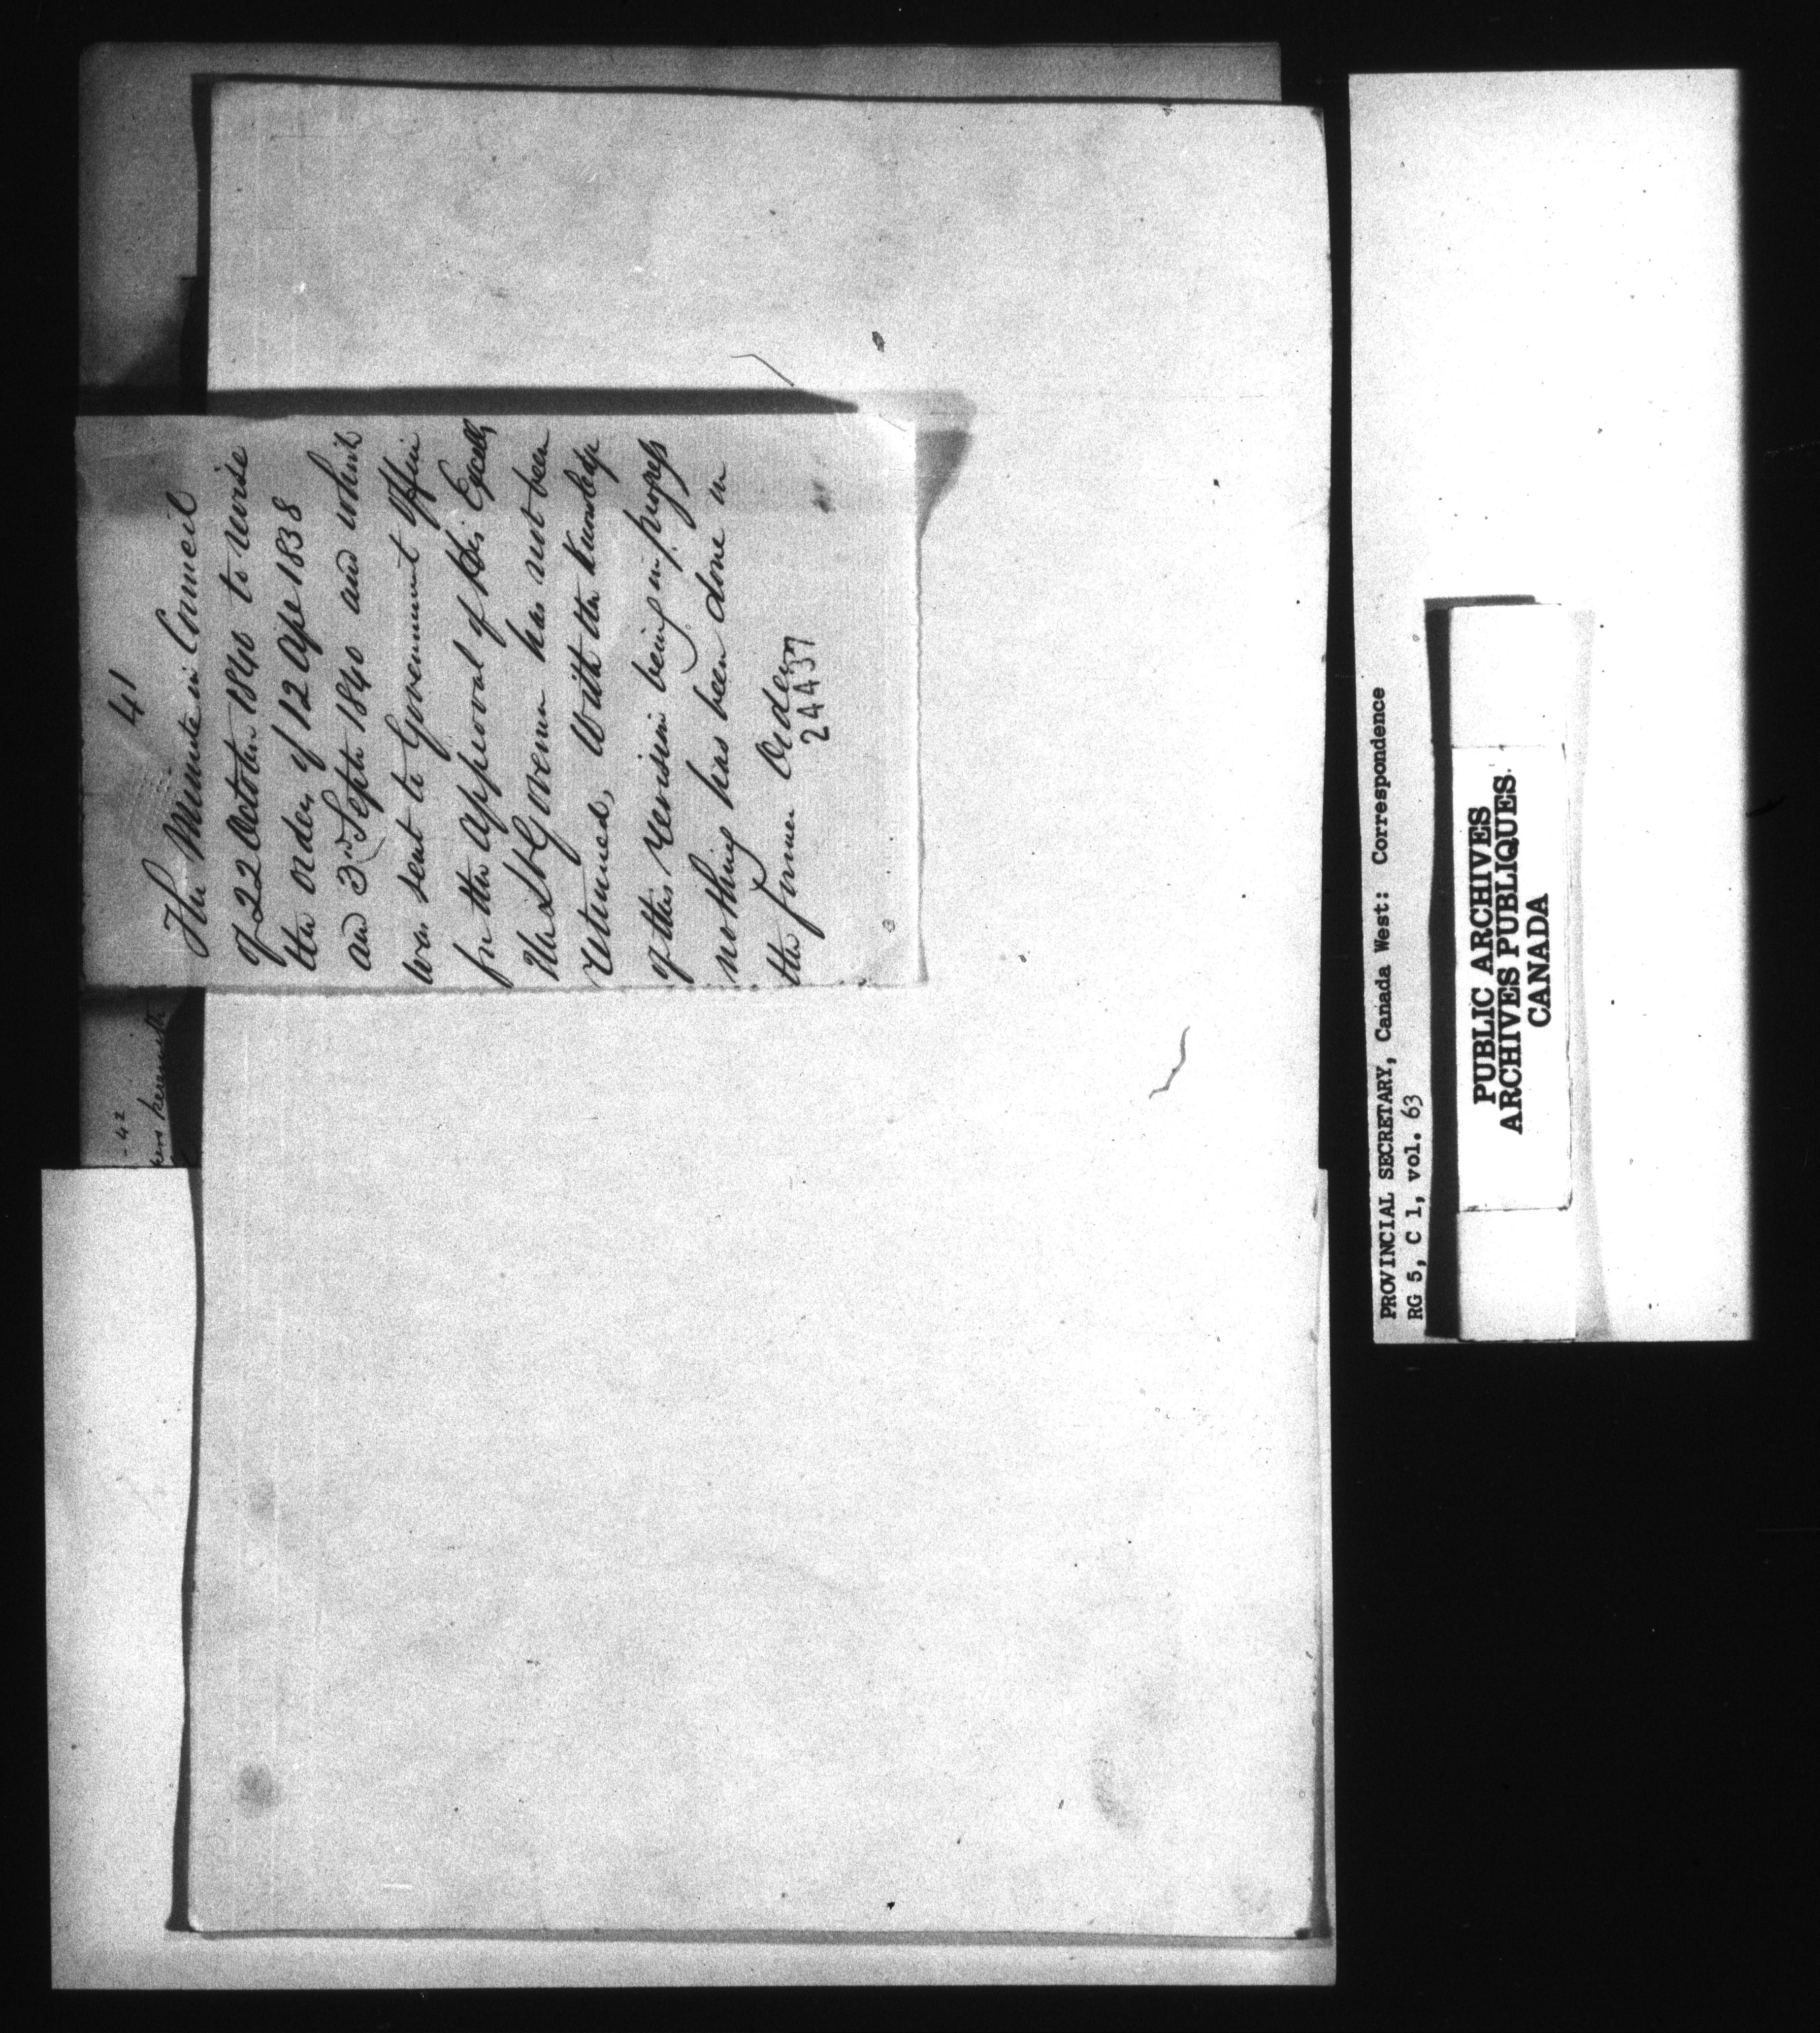 41
The Minute in Council
of 22 October 1840 to revise
the orders of 12 Apl 1838
and 3rd Septr 1840 and which
was sent to Government Office
for the Approval of His Excelly
the Lt Governor has not been
returned, With the Knowledge
of this revision being in progress
nothing has been done in
the former Orders
24437
- 42
herewith
PROVINCIAL SECRETARY, Canada West: Correspondence
RG 5, C 1, vol. 63
PUBLIC ARCHIVES
ARCHIVES PUBLIQUES
CANADA